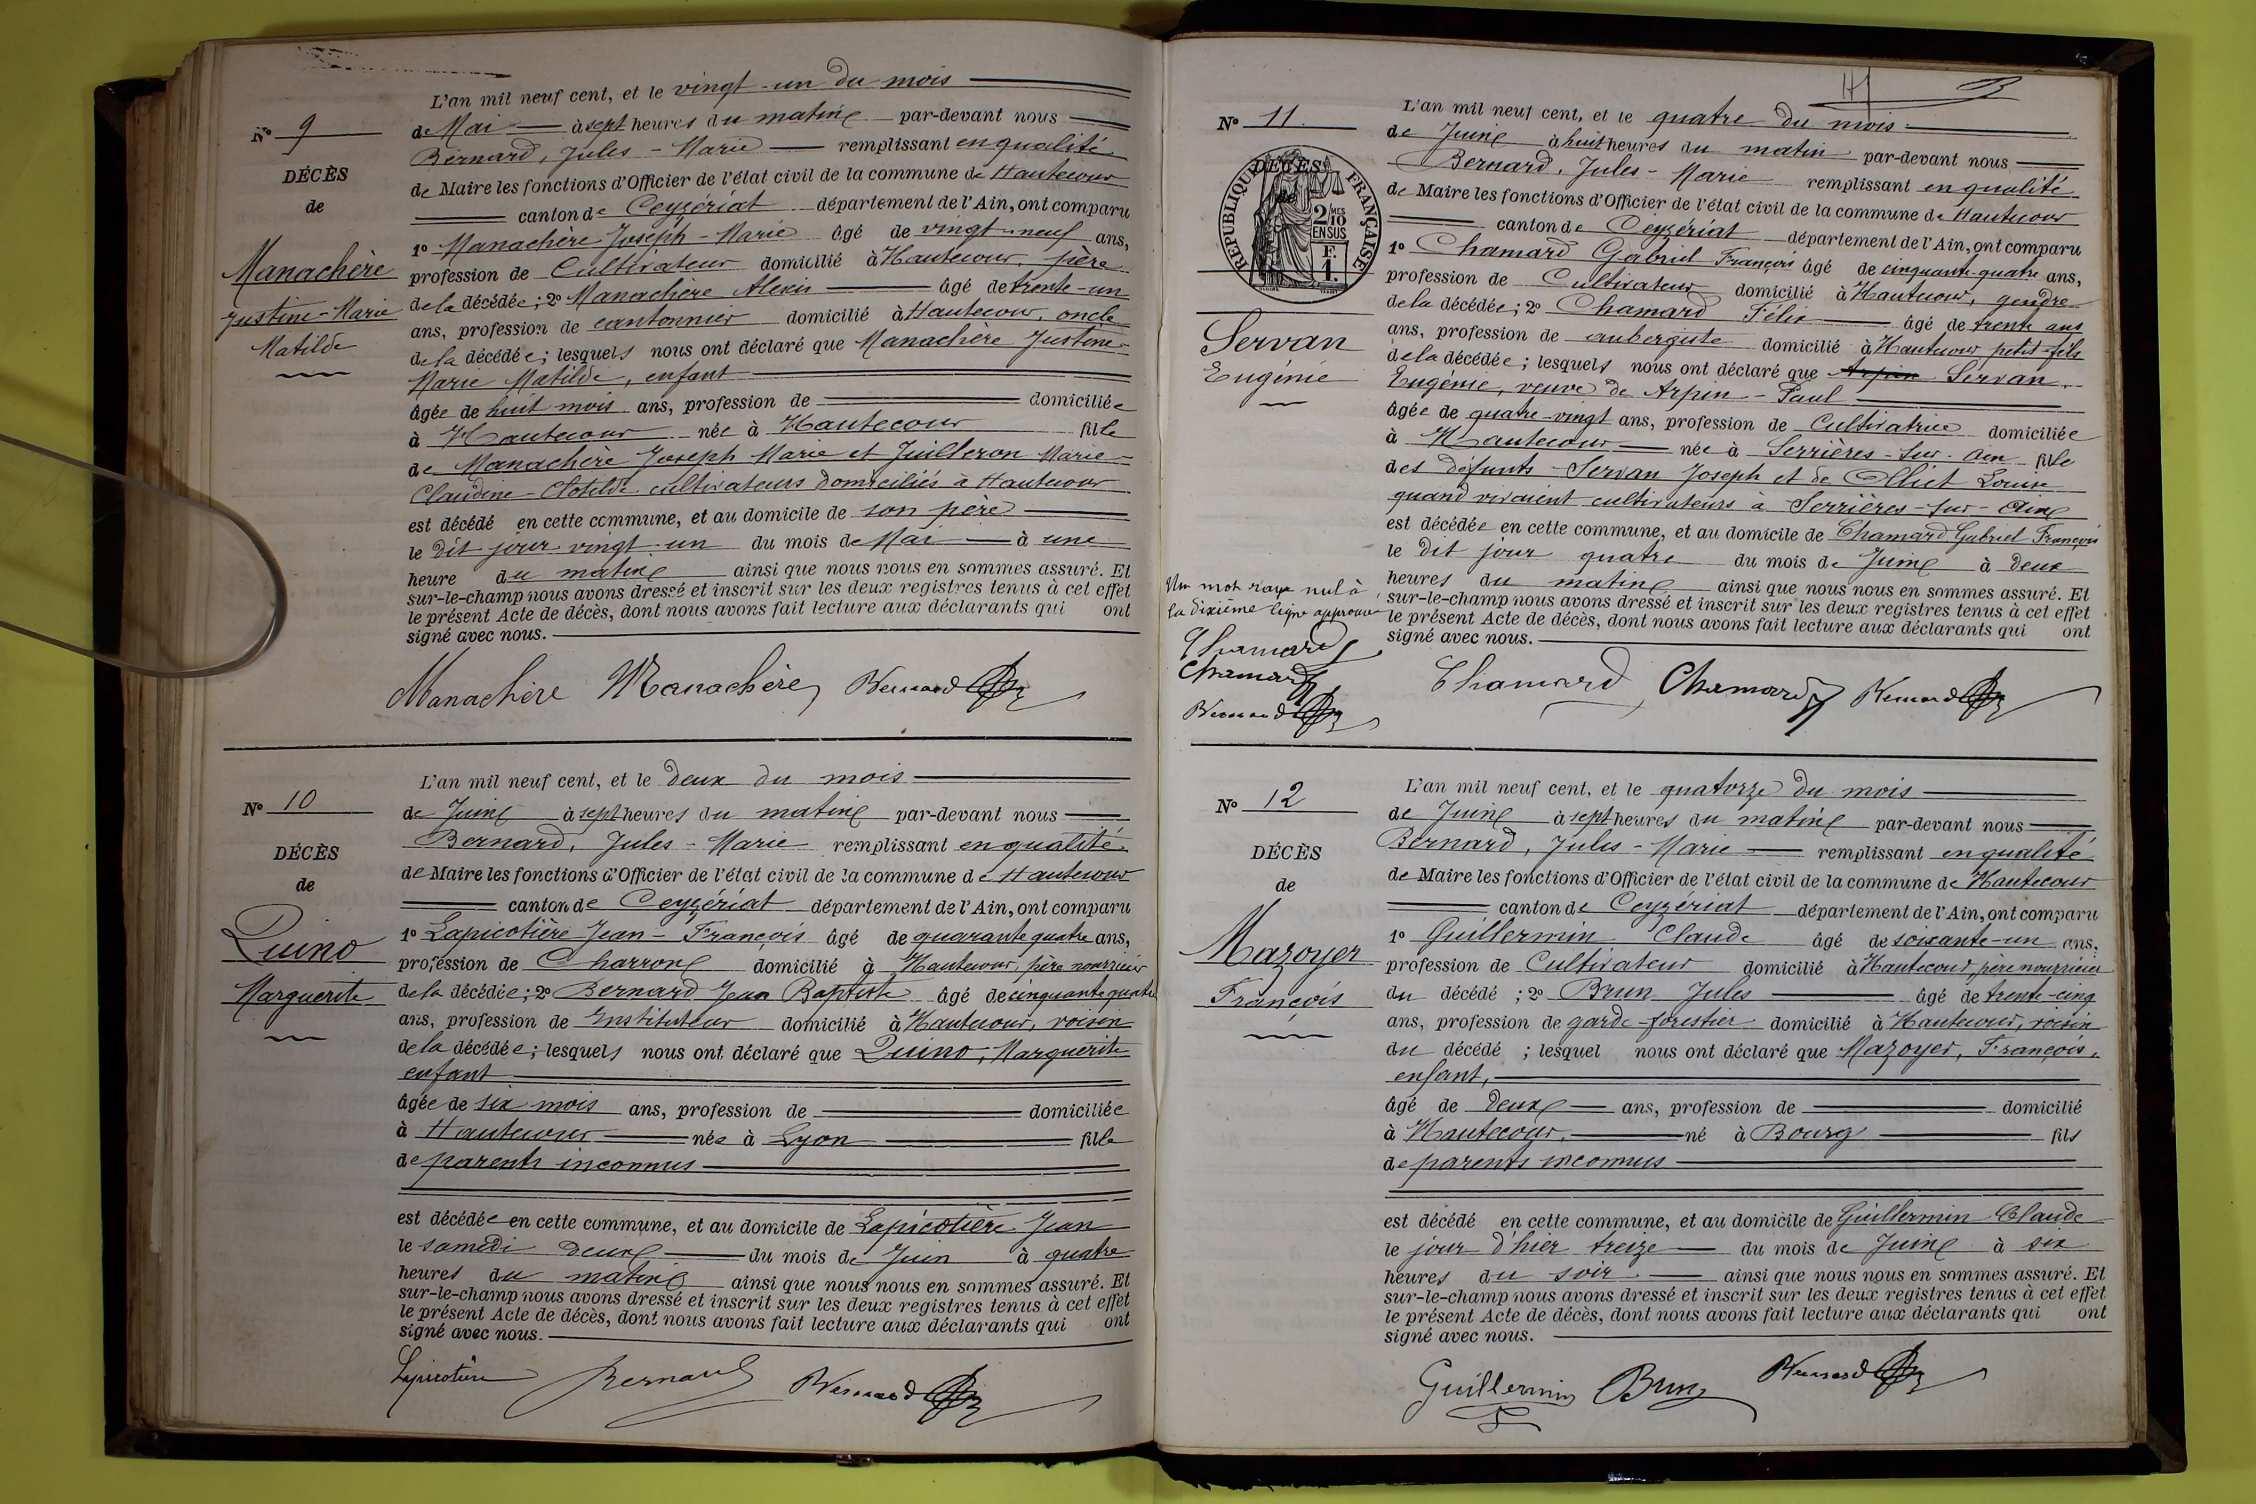 L'an mil neuf cent, et le vingt-un du mois
N° 9
de Mai à sept heures du matin par-devant nous
Bernard, Jules-Marie remplissant en qualité
DÉCÈS
de Maire les fonctions d'Officier de l'état civil de la commune de Hautecour
de
canton de Ceyzériat département de l'Ain, ont comparu
1° Manachère Joseph-Marie âgé de vingt-neuf ans,
Manachère
profession de Cultivateur domicilié à Hautecour, père
Justine-Marie
de la décédée; 2° Manachère Alexis âgé de trente-un
Matilde
ans, profession de cantonnier domicilié à Hautecour, oncle
de la décédée; lesquels nous ont déclaré que Manachère Justine
Marie Matilde, enfant
âgée de huit mois ans, profession de domiciliée
à Hautecour née à Hautecour fille
de Manachère Joseph Marie et Juilleron Marie-
Claudine-Clotilde cultivateurs domiciliés à Hautecour
est décédé en cette commune, et au domicile de son père
le dit jour vingt-un du mois de Mai à une
heure du matin ainsi que nous nous en sommes assuré. Et
sur-le-champ nous avons dressé et inscrit sur les deux registres tenus à cet effet
le présent Acte de décès, dont nous avons fait lecture aux déclarants qui ont
signé avec nous.
Manachère Manachère Bernard
L'an mil neuf cent, et le deux du mois
N° 10
de Juin à sept heures du matin par-devant nous
Bernard, Jules-Marie remplissant en qualité
DÉCÈS
de Maire les fonctions d'Officier de l'état civil de la commune de Hautecour
de
canton de Ceyzériat département de l'Ain, ont comparu
1° Lapicotière Jean-François âgé de quarante quatre ans,
Quino
profession de Charron domicilié à Hautecour, père nourricier
Marguerite
de la décédée; 2° Bernard Jean Baptiste âgé de cinquante quatre
ans, profession de Instituteur domicilié à Hautecour, voisin
de la décédée; lesquels nous ont déclaré que Quino, Marguerite
enfant
âgée de six mois ans, profession de domiciliée
à Hautecour née à Lyon fille
de parents inconnus
est décédée en cette commune, et au domicile de Lapicotière Jean
le samedi deux du mois de Juin à quatre
heures du matin ainsi que nous nous en sommes assuré. Et
sur-le-champ nous avons dressé et inscrit sur les deux registres tenus à cet effet
le présent Acte de décès, dont nous avons fait lecture aux déclarants qui ont
signé avec nous.
Lapicotière Bernard Bernard
L'an mil neuf cent, et le quatre du mois
N° 11
de Juin à huit heures du matin par-devant nous
Bernard, Jules-Marie remplissant en qualité
DÉCÈS
de
RÉPUBLIQUE FRANÇAISE
2 MES
10
EN SUS
F.
1.
de Maire les fonctions d'Officier de l'état civil de la commune de Hautecour
canton de Ceyzériat département de l'Ain, ont comparu
1° Chamard Gabriel François âgé de cinquante-quatre ans,
profession de Cultivateur domicilié à Hautecour, gendre
de la décédée; 2° Chamard Félix âgé de trente ans
Servan
ans, profession de aubergiste domicilié à Hautecour petit-fils
Eugénie
de la décédée; lesquels nous ont déclaré que Arpin Servan
Eugénie, veuve de Arpin-Paul
âgée de quatre-vingt ans, profession de Cultivatrice domiciliée
à Hautecour née à Serrières-sur-Ain fille
des défunts Servan Joseph et de Olliet Louise
quand vivaient cultivateurs à Serrières-sur-Ain
est décédée en cette commune, et au domicile de Chamard Gabriel François
le dit jour quatre du mois de Juin à deux
heures du matin ainsi que nous nous en sommes assuré. Et
sur-le-champ nous avons dressé et inscrit sur les deux registres tenus à cet effet
le présent Acte de décès, dont nous avons fait lecture aux déclarants qui ont
signé avec nous.
Un mot rayé nul à
la dixième ligne approuvé
Chamard
Chamard
Bernard
Chamard Chamard Bernard
L'an mil neuf cent, et le quatorze du mois
N° 12
de Juin à sept heures du matin par-devant nous
Bernard, Jules-Marie remplissant en qualité
DÉCÈS
de Maire les fonctions d'Officier de l'état civil de la commune de Hautecour
de
canton de Ceyzériat département de l'Ain, ont comparu
1° Guillermin Claude âgé de soixante-un ans,
Mazoyer
profession de Cultivateur domicilié à Hautecour, père nourricier
François
du décédé; 2° Brun Jules âgé de trente-cinq
ans, profession de garde-forestier domicilié à Hautecour, voisin
du décédé; lesquel nous ont déclaré que Mazoyer, François,
enfant,
âgé de deux ans, profession de domicilié
à Hautecour, né à Bourg fils
de parents inconnus
est décédé en cette commune, et au domicile de Guillermin Claude
le jour d'hier treize du mois de Juin à six
heures du soir ainsi que nous nous en sommes assuré. Et
sur-le-champ nous avons dressé et inscrit sur les deux registres tenus à cet effet
le présent Acte de décès, dont nous avons fait lecture aux déclarants qui ont
signé avec nous.
Guillermin Brun Bernard